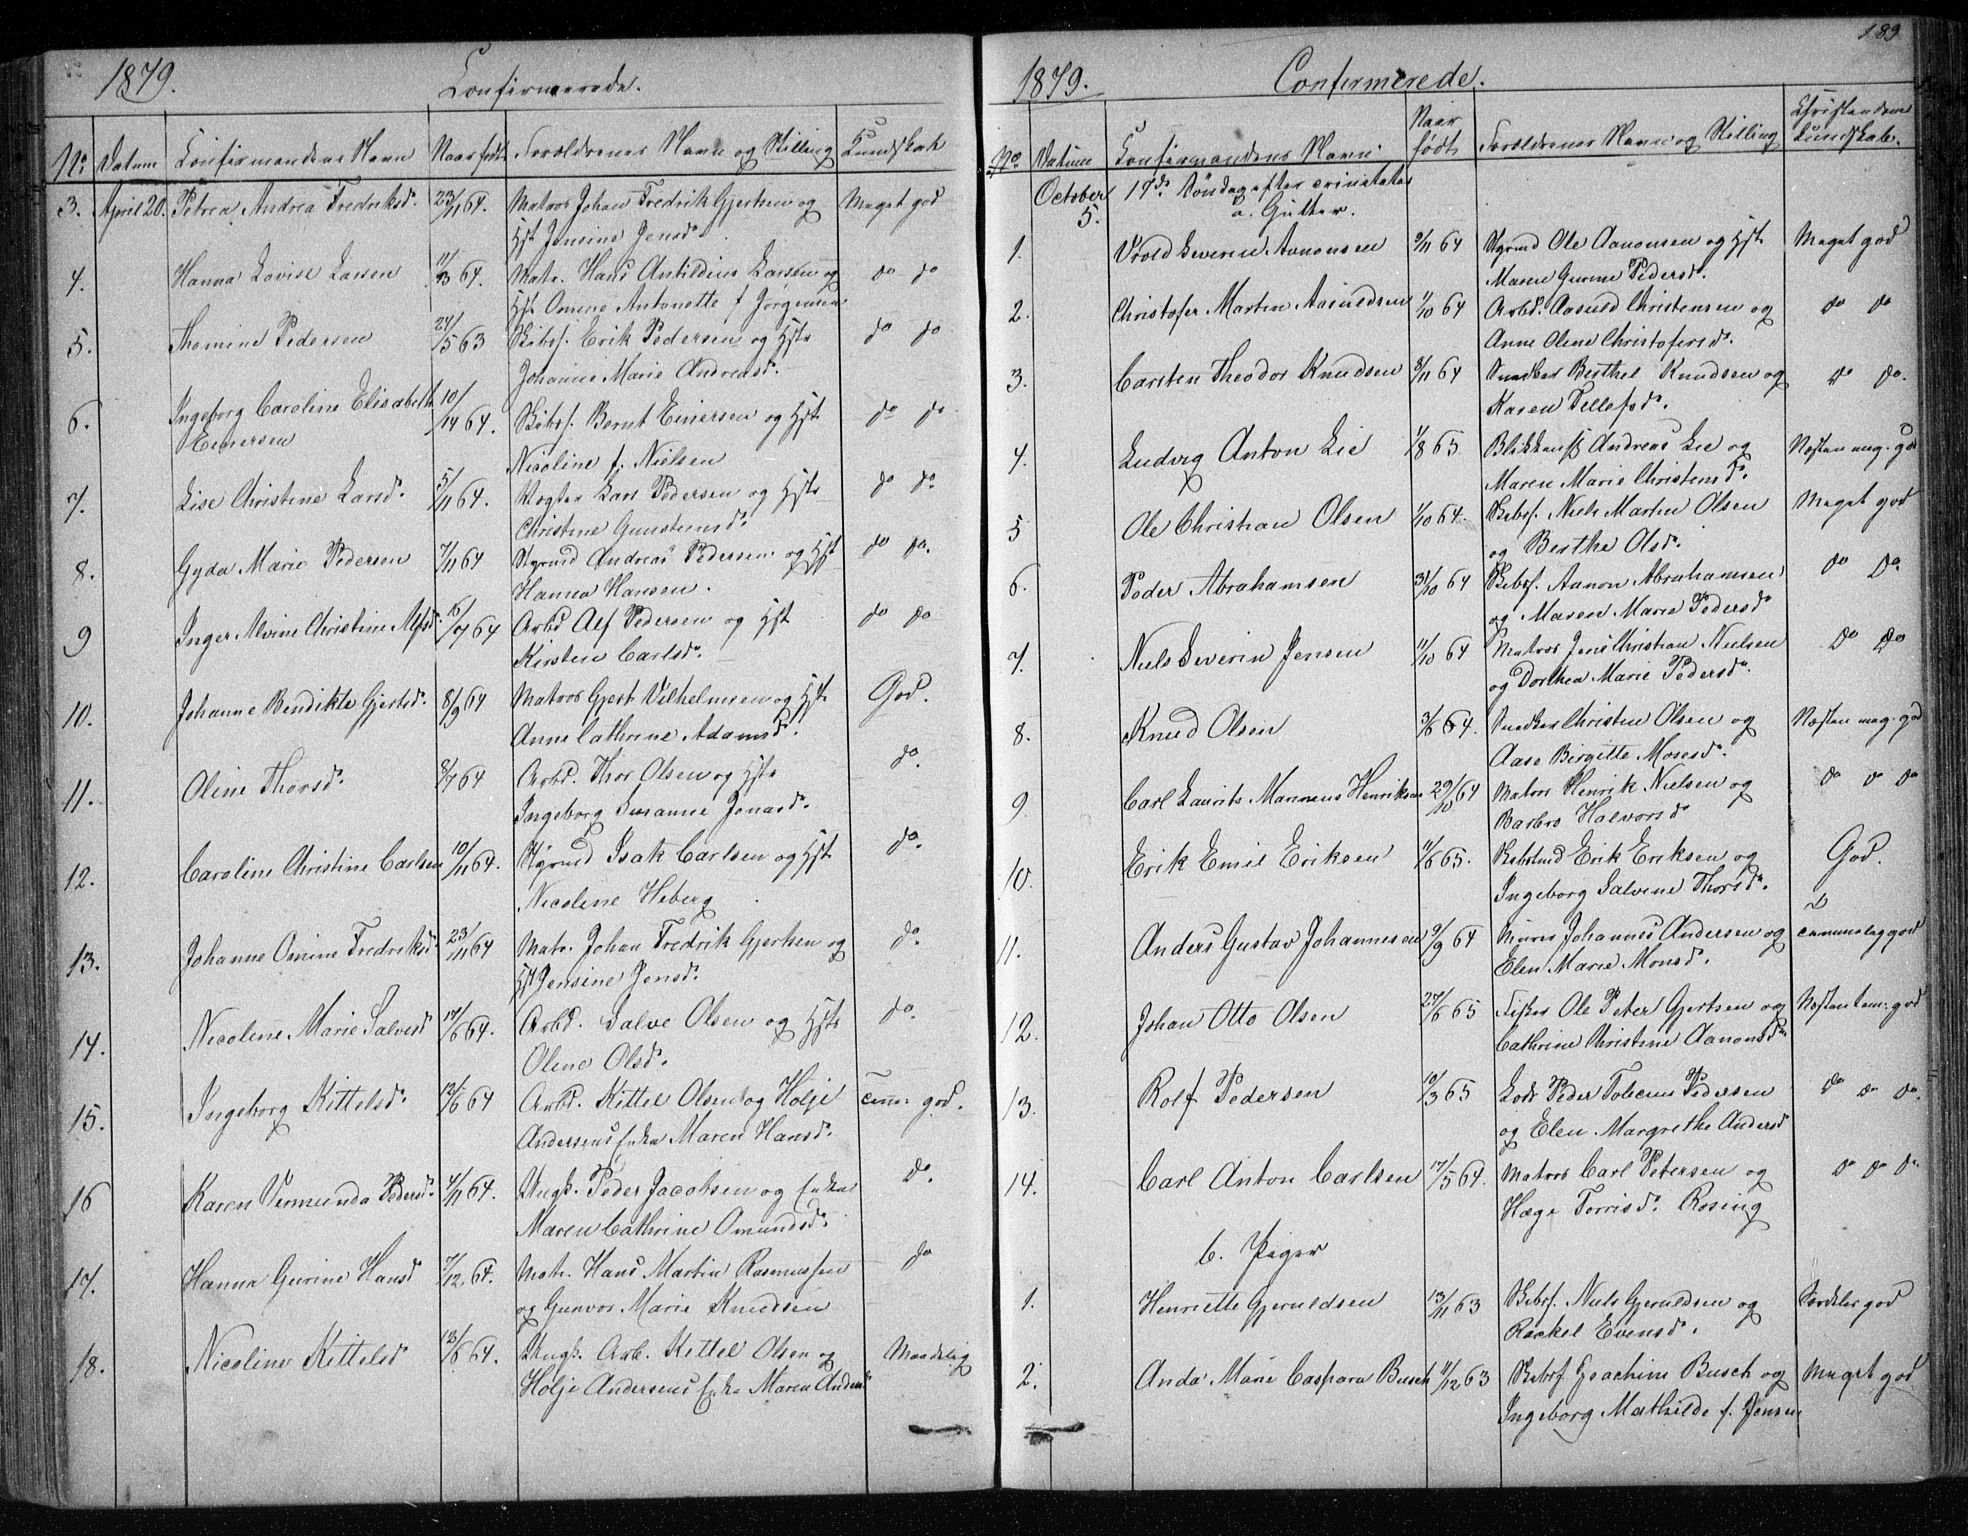 1879.
Confirmerede.
No Datum Confirmandens Navn Naar født Forældrenes Navn og Stilling Kundskab
3. April 20. Petrea Andrea Fredriksd. 23/11 64. Matros Johan Fredrik Gjertsen og Meget god
Hst Jensine Jensd.
4. Hanna Lovise Larsen 11/3 64. Matr. Hans Antildius Larsen og do do
Hst Omine Antonette f Jørgensen
5. Thomine Pedersen 24/5 63 Skibsf. Erik Pedersen og Hstr do do
Johanne Marie Andreasd.
6. Ingeborg Caroline Elisabeth 10/14 64. Skibsf. Bernt Einersen og Hst do do
Einersen
Nicoline f. Nielsen
7. Lise Christine Larsd. 5/11 64. Vægter Lars Pedersen og Hstr do do
Christine Gunstensd.
8. Gyda Marie Pedersen 7/11 64 Styrmd Andreas Pedersen og Hst do do.
Hanna Hansen.
9 Inger Alvine Christine Alfsd. 16/7 64 Arbd Alf Pedersen og Hst do do
Kirsten Carlsd.
10. Johanne Bendikte Gjertsd. 8/9 64 Matros Gjert Vilhelmsen og Hst God.
Anne Cathrine Adamsd.
11. Oline Thorsd. 8/7 64 Arbd. Thor Olsen og Hstr do.
Ingeborg Susanne Jonasd.
12. Caroline Christine Carlsen 10/11 64. Styrmd Isak Carlsen og Hst do.
Nicoline Heberg
13. Johanne Omine Fredriksd. 23/11 64 Matr. Johan Fredrik Gjertsen og do.
Hst Jensine Jensd.
14. Nicoline Marie Salvesd 17/6 64. Arbd. Salve Olsen og Hstr do.
Oline Olsd.
15. Ingeborg Kittelsd. 12/6 64 Arbd. Kittel Olsen og Holje Temm. god.
Andersens Enke Maren Hansd.
16 Karen Vermunda Pedersd. 4/11 64. Ungk. Peder Jacobsen og Enke do.
Maren Cathrine Omundsd.
17. Hanna Gurine Hansd 7/12. 64. Matr. Hans Martin Rasmussen do
og Gunvor Marie Knudsen
18. Nicoline Kittelsd 12/6 64. Ungk. Arb. Kittel Olsen og Maadelig
Holje Andersens Enke Maren Andersd
189
1879.
Confirmerede.
No Datum Confirmandens Navn. Naar født Forældrenes Navn og Stilling Christendoms Kundskab.
October 17de Søndag efter trinitatis
5. a. Gutter.
1. Vrold Severin Aanonsen 9/11 64 Styrmd Ole Aanonsen og Hst Meget god
Maren Gurine Pedersd.
2. Christofer Martin Aasuldsen 1/10 64 Arbd. Aasuld Christensen og do do
Anne Olene Christofersd.
3. Carsten Theodor Knudsen 8/11 64 Snedker Berthel Knudsen og do do.
Karen Tellefsd.
4. Ludvig Anton Lie 1/8 65 Blikkensl Andreas Lie og Næsten meg. god
Maren Marie Christensd.
5 Ole Christian Olsen 1/10 64. Skibsf. Niels Martin Olsen Meget god
og Berthe Olsd.
6. Peder Abrahamsen 31/10 64 Skibsf. Aanon Abrahamsen do do.
og Maren Marie Pedersd
7. Niels Severin Jensen 11/10 64 Matros Jens Christian Nielsen do do
og Dorthea Marie Pedersd.
8. Knud Olsen 3/6 64. Snedker Christen Olsen og Næsten meg. god
Aase Birgitte Mosesd.
9. Carl Laurits Marinens Henriksen 29/10 64 Matros Henrik Nielsen og do do do
Barbro Halvorsd
10. Erik Emil Eriksen 11/6 65. Erik Eriksen og God.
Ingeborg Salvine Thorsd.
11. Anders Gustav Johannesen 9/9 64 Murer Johannes Andersen og temmelig god
Elen Marie Monsd.
12. Johan Otto Olsen 27/6 65 Fisker Ole Peter Gjertsen og Næsten tem. god
Cathrine Christine Aanonsd.
13. Rolf Pedersen 10/3 65 Lods Peder Tobias Pedersen do do do.
og Elen Margrethe Andersd
14. Carl Anton Carlsen 17/5 64. Matros Carl Petersen og do do do
Hæge Torrisd. Rosing
b. Piger
1. Henriette Gjeruldsen 13/11 63 Skibsf. Niels Gjeruldsen og Særdeles god
Rackel Evensd.
2. Anda Marie Caspara Busch 11/12 63 Skibsf. Joachim Busch og Meget god
Ingeborg Mathilde f. Jensen